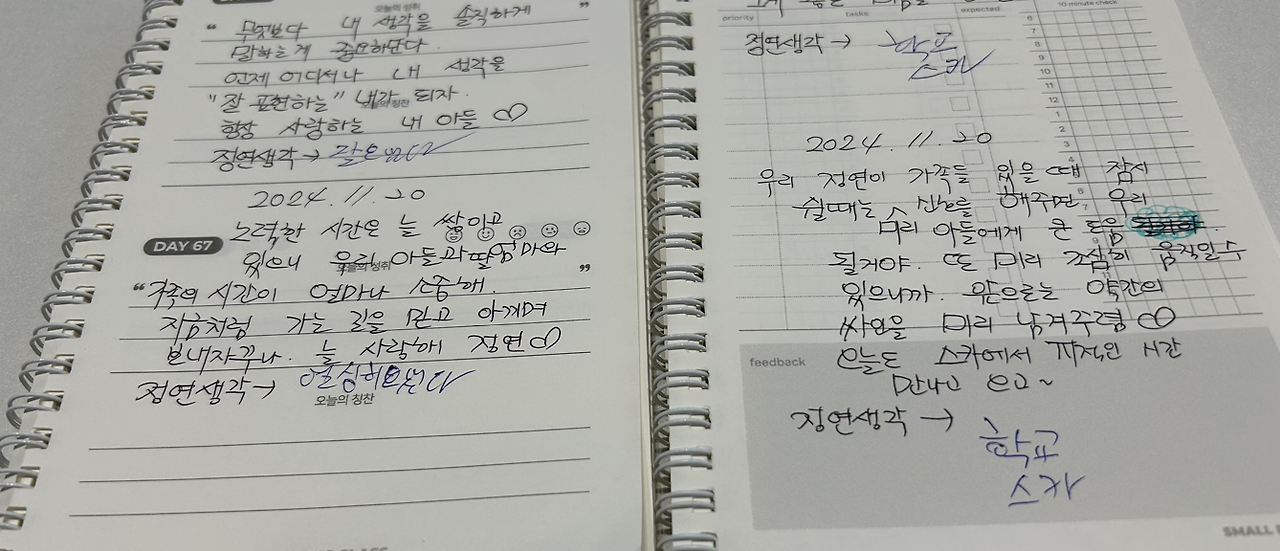 오늘의 성취
“ 무엇보다 내 생각을 솔직하게 ”
말하는게 중요하단다.
언제 어디서나 내 생각을
"잘 표현하는" 내가 되자.
오늘의 칭찬
항상 사랑하는 내 아들 ♡
정연생각→
2024.11.20
DAY 67
노력한 시간은 늘 쌓이고
있으니 우리 아들과딸엄마와
오늘의 성취
“ 가족의 시간이 얼마나 소중해. ”
지금처럼 가는 길을 믿고 아끼며
보내자꾸나. 늘 사랑해 정연♡
정연생각→ 열심히
오늘의 칭찬
priority tasks expected 10 minute check
정연생각→ 학교
스카
6
7
8
9
10
11
12
1
2
3
4
2024.11.20
우리 정연이 가족들 있을때 잠시
쉴때는 신호를 해주면 우리
미리 아들에게 큰 도움
될거야. 또 미리 조심히 움직일수
있으니까. 앞으로는 약간의
싸인을 미리 남겨주렴 ♡
feedback
오늘도 스카에서 지적인 시간
만나고 오고~
정연생각→
학교
스카
SMALL